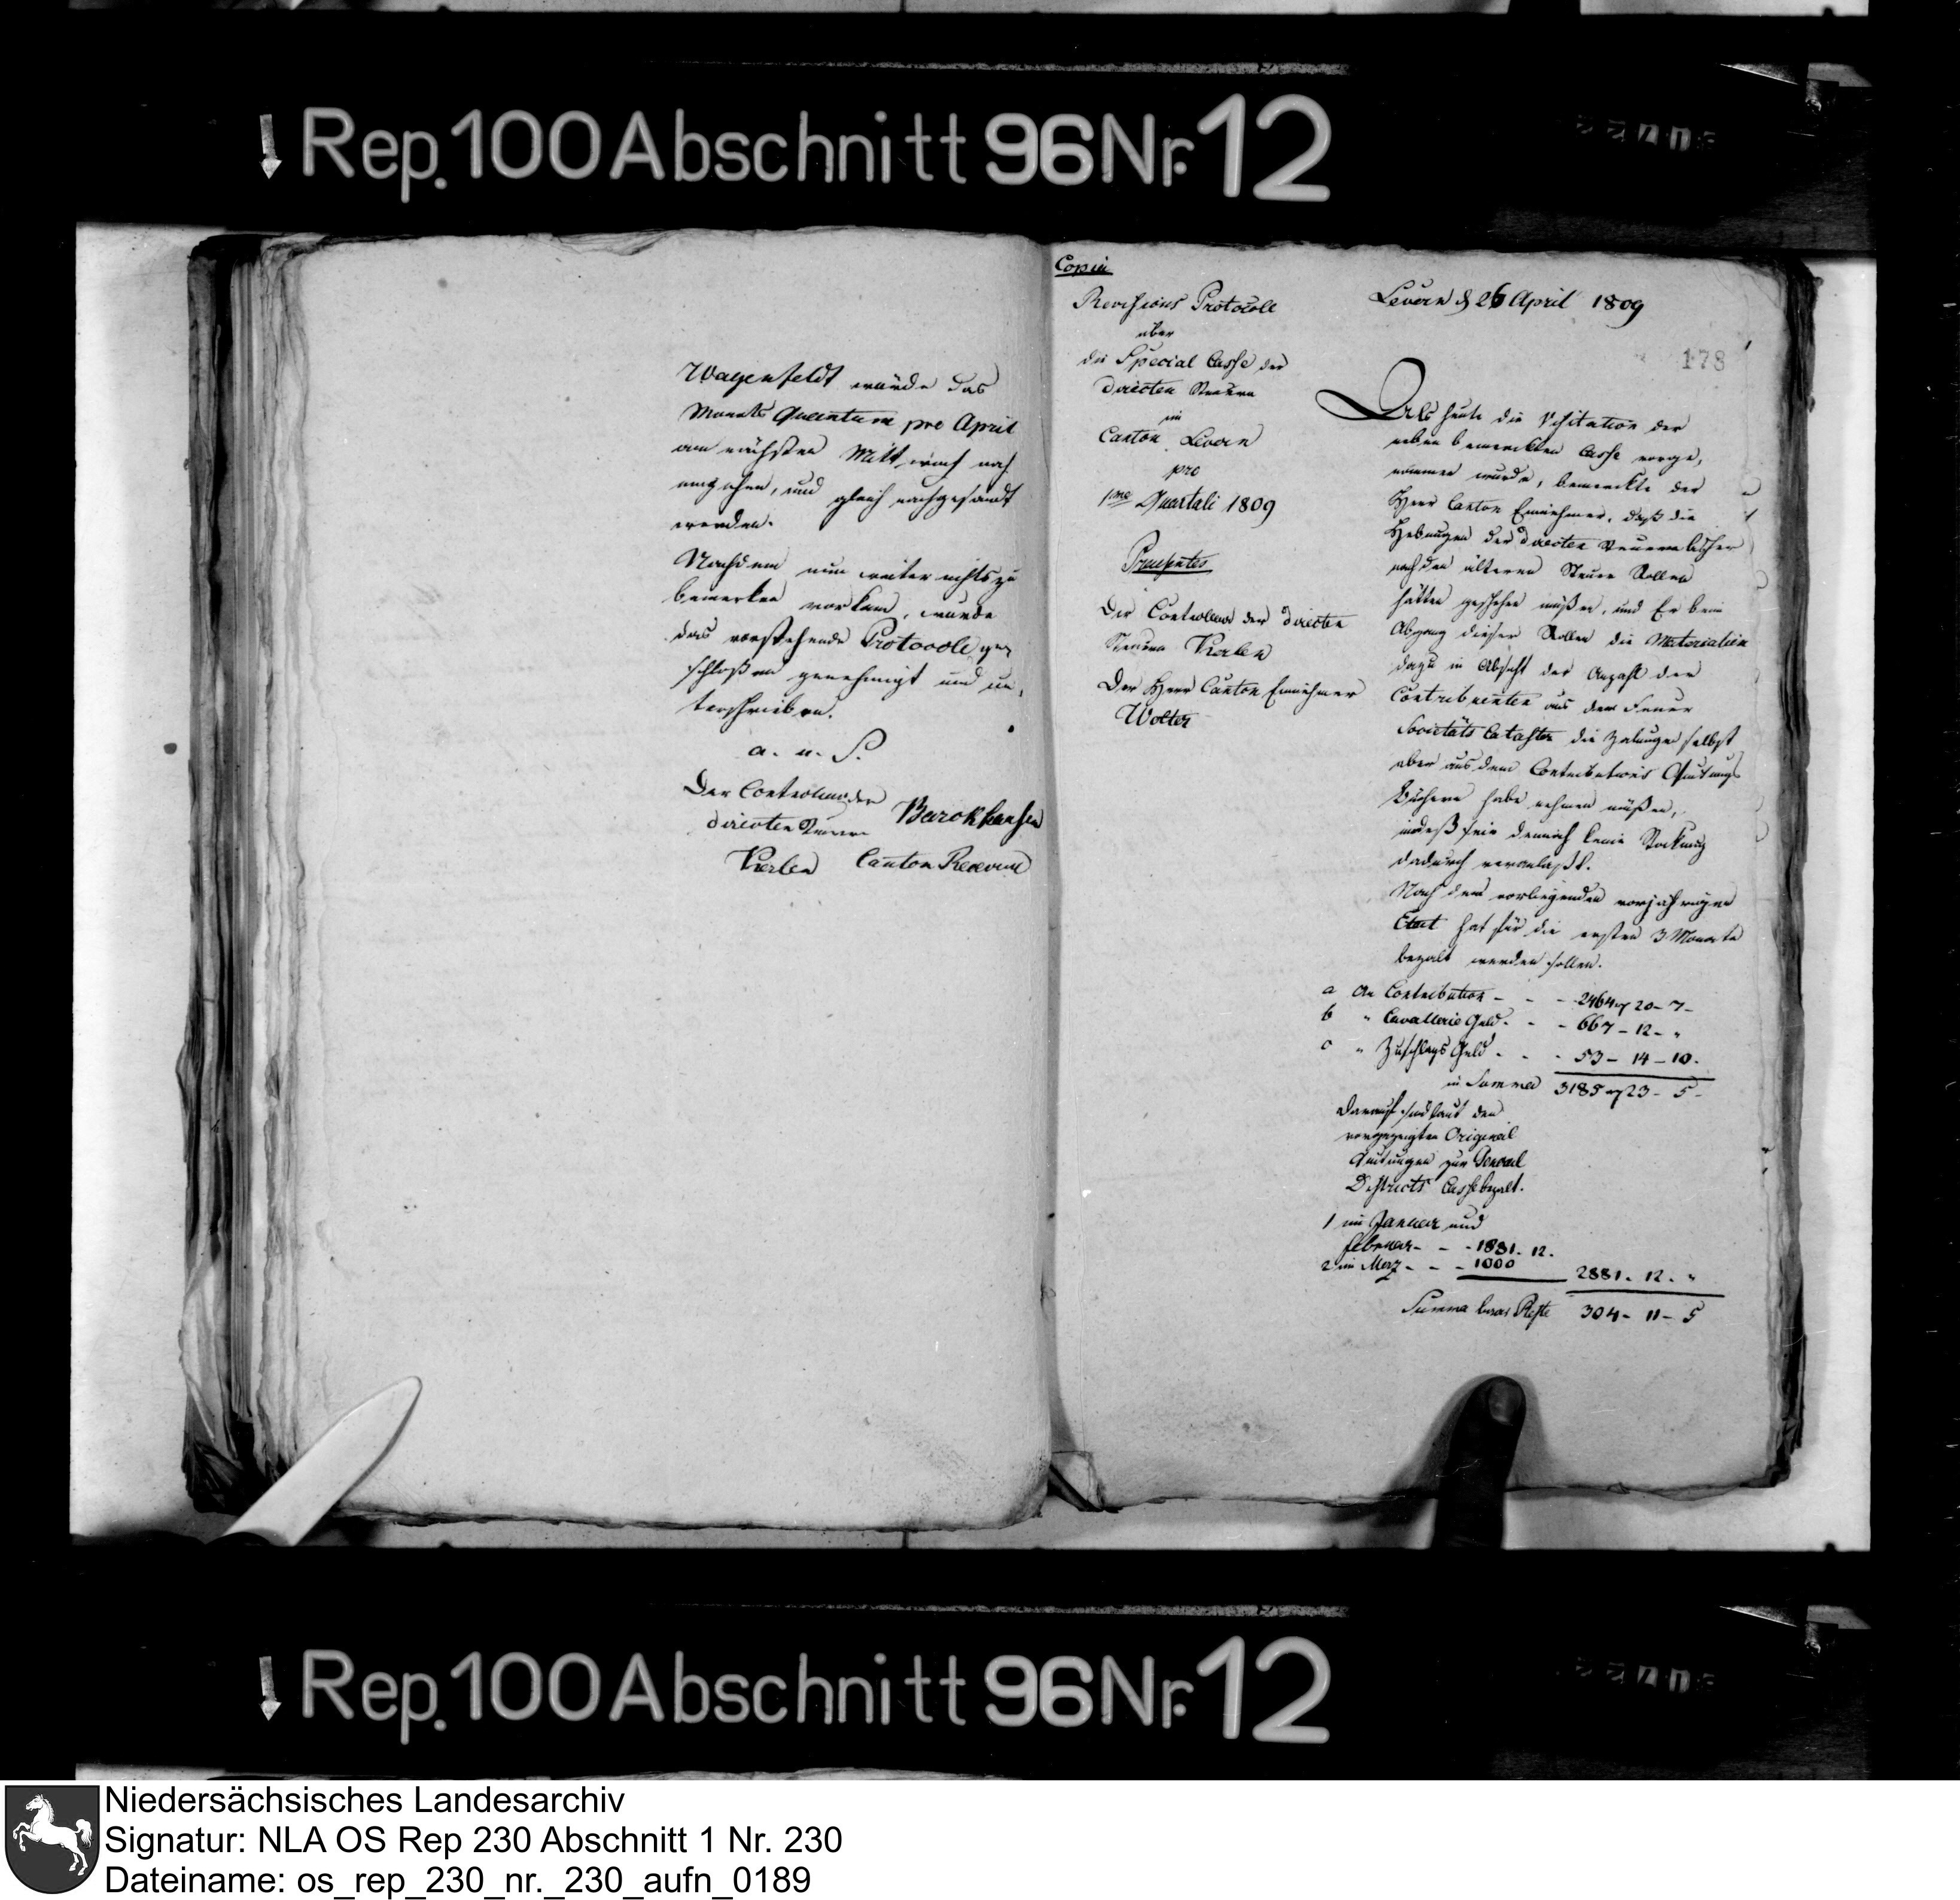 Rep. 100 Abschnitt 96 Nr. 12
Wagenfeldt würde das
Monats Quantum pro April
am nächsten Mittwoch noch
eingehen, und gleich nachgesandt
werden.
Nachdem nun weiter nichts zu
bemerken vorkam, wurde
das vorstehende Protocoll ge-
schloßen genehmigt und un-
terschrieben.
a. u. S.
Der Controlleur der
directen Steuern
Barckhausen
Kerlen Canton Receveur
Copia
Revisions Protocoll
über
die Special Casse der
directen Steuern
im
Canton Levern
pro
1mo Quartali 1809
Praesentes
Der Controlleur der directen
Steuern Kerlen
Der Herr Canton Einnehmer
Wolter
Levern d 26 April 1809
178
Als heute die Visitation der
neben bemerckten Casse vorge-
nommen wurde, bemerckte der
Herr Canton Einnehmer, daß die
Hebungen der directen Steuern bisher
nach den älteren Steuer Rollen
hätten geschehen müßen, und Er beim
Abgang dieser Rollen die Materialien
dazu in Absicht der Anzahl der
Contribuenten aus dem Feuer
Societäts Cataster die Zalungen selbst
aber aus dem Contributions Quitungs
Büchern habe nehmen müßen,
indeß sein dennoch keine Stockung
dadurch veranlaßt.
Nach dem vorliegenden vorjährigen
Etat hat für die ersten 3 Monate
bezalt werden sollen.
a An Contribution - - - 2464 rt 20 - 7 -
b " Cavallerie Geld - - - 667 - 12 - "
c " Zuschlags Geld - - - 53 - 14 - 10.
in Summa 3185 rt 23 - 5 -
Darauf sind laut den
vorgezeigten Original
Quitungen zur General
Districts Casse bezalt.
1 im Januar und
Februar - - - 1881. 12.
2 im Merz - - - 1000 2881. 12. "
Summa bar Reste 304 - 11 - 5
Rep. 100 Abschnitt 96 Nr. 12
Niedersächsisches Landesarchiv
Signatur: NLA OS Rep 230 Abschnitt 1 Nr. 230
Dateiname: os_rep_230_nr._230_aufn_0189